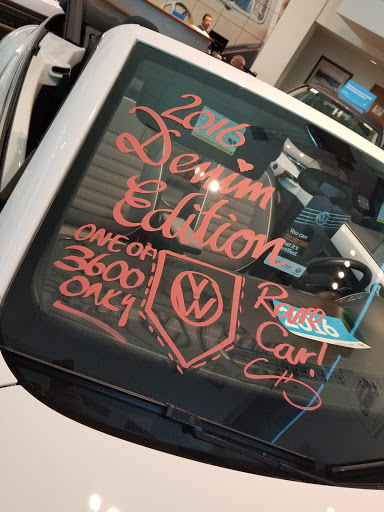 2016
Denim
Edition
ONE OF
3600
ONLY
VW
Rare
Car!
2016
You can